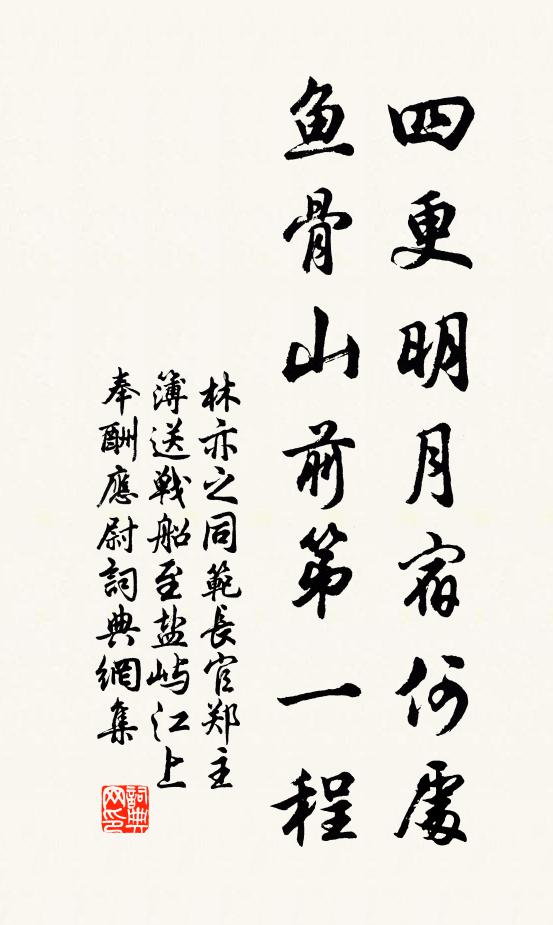 四更明月宿何處
鱼骨山前第一程
林亦之同範長官郑主
簿送戦船至盐屿江上
奉酬應尉詞典網集
詞典网印